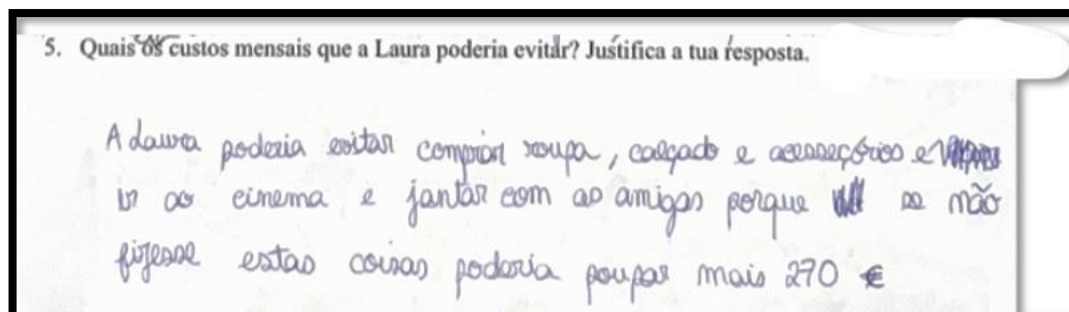 5. Quais os custos mensais que a Laura poderia evitar? Justifica a tua resposta.
A Laura poderia evitar comprar roupa, calçado e acesseçórios e
ir ao cinema e jantar com as amigas porque se não
fizesse estas coisas poderia poupar mais 270 €